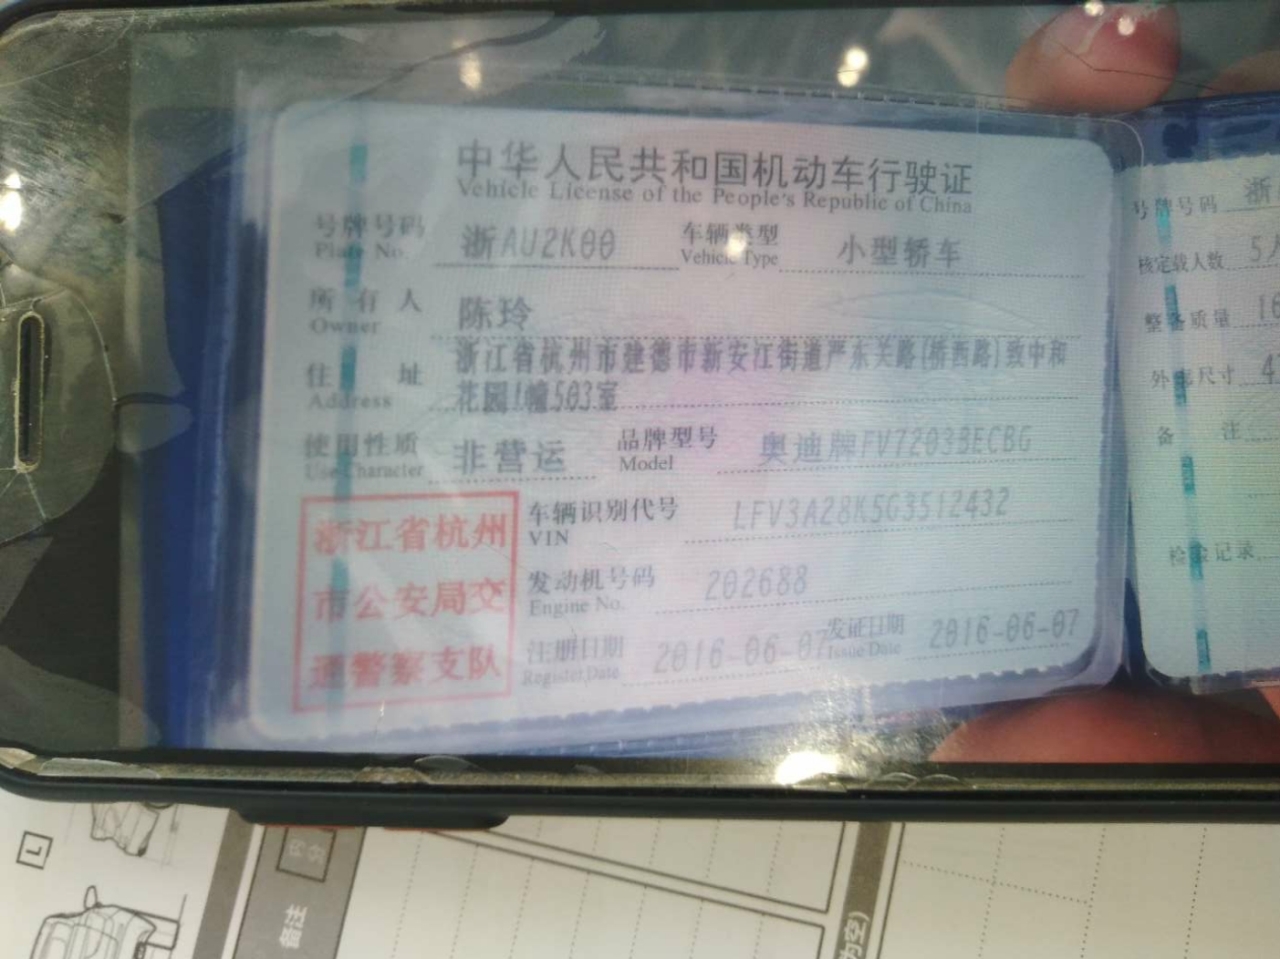 中华人民共和国机动车行驶证
Vehicle License of the People's Republic of China
号牌号码 浙AU2K00 车辆类型 小型轿车
Plate No. Vehicle Type
所有人 陈玲
Owner
浙江省杭州市建德市新安江街道严东关路(桥西路)致中和
住址 花园1幢503室
Address
使用性质 非营运 品牌型号 奥迪牌FV7203BECBG
Use Character Model
浙江省杭州
市公安局交
通警察支队
车辆识别代号 LFV3A28K5G3512432
VIN
发动机号码 202688
Engine No.
注册日期 2016-06-07 发证日期 2016-06-07
Register Date Issue Date
号牌号码 浙
核定载人数 5人
整备质量
外廓尺寸 4
备注
检验记录
L
备注
为空)